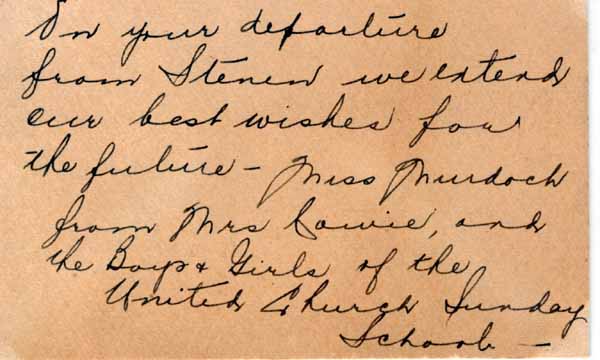 On your departure
from Stenen we extend
our best wishes for
the future - Miss Murdoch
from Mrs Cowie, and
the Boys & Girls of the
United Church Sunday
School -